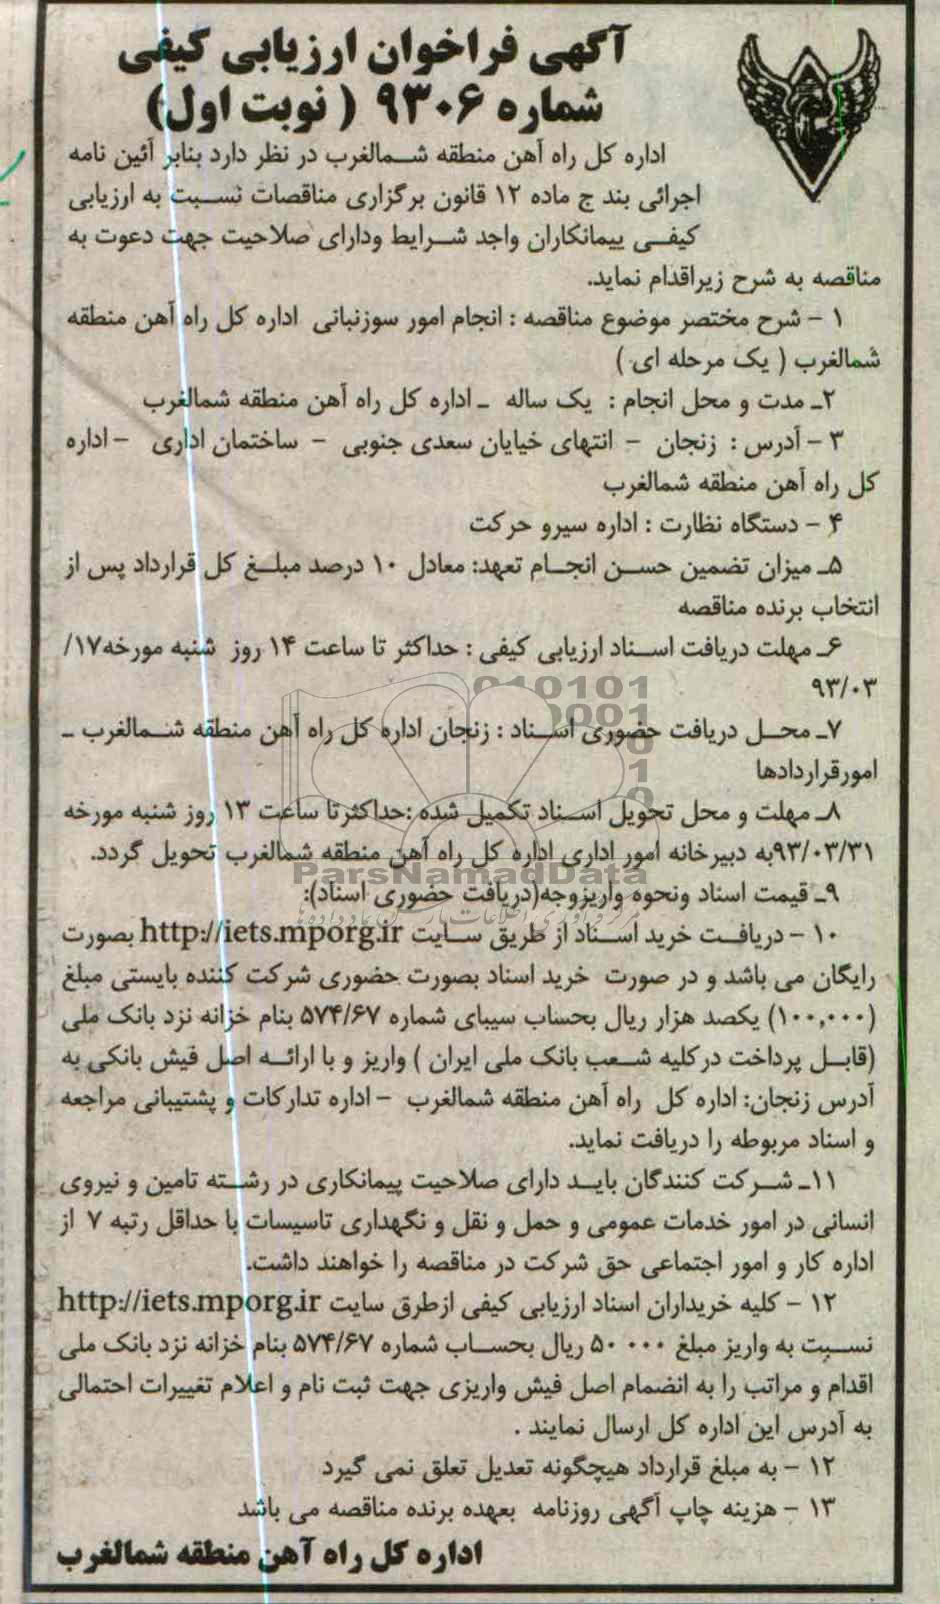 آگهی فراخوان ارزیابی کیفی
شماره ۹۳۰۶ ( نوبت اول)
اداره کل راه آهن منطقه شـمالغرب در نظر دارد بنابر آئین نامه
اجرائی بند ج ماده ۱۲ قانون برگزاری مناقصات نسبت به ارزیابی
کیفـی پیمانکاران واجد شـرایط ودارای صلاحیت جهت دعوت به
مناقصه به شرح زیراقدام نماید.
۱ - شرح مختصر موضوع مناقصه : انجام امور سوزنبانی اداره کل راه آهن منطقه
شمالغرب ( یک مرحله ای )
۲ـ مدت و محل انجام : یک ساله ـ اداره کل راه آهن منطقه شمالغرب
۳ - آدرس : زنجان - انتهای خیایان سعدی جنوبی - ساختمان اداری - اداره
کل راه آهن منطقه شمالغرب
۴ - دستگاه نظارت : اداره سیرو حرکت
۵ـ میزان تضمین حسـن انجـام تعهد: معادل ۱۰ درصد مبلـغ کل قرارداد پس از
انتخاب برنده مناقصه
۶ـ مهلت دریافت اسـناد ارزیابی کیفی : حداکثر تا ساعت ۱۴ روز شنبه مورخه۱۷/
۹۳/۰۳
۷ـ محـل دریافت حضوری اسـناد : زنجان اداره کل راه آهن منطقه شـمالغرب ـ
امورقراردادها
۸ـ مهلت و محل تحویل اسـناد تکمیل شده :حداکثرتا ساعت ۱۳ روز شنبه مورخه
۹۳/۰۳/۳۱به دبیرخانه امور اداری اداره کل راه آهن منطقه شمالغرب تحویل گردد.
ParsNamadData
۹ـ قیمت اسناد ونحوه واریزوجه(دریافت حضوری اسناد):
۱۰ - دریافـت خرید اسـناد از طریق سـایت http://iets.mporg.ir بصورت
رایگان می باشد و در صورت خرید اسناد بصورت حضوری شرکت کننده بایستی مبلغ
(۱۰۰,۰۰۰) یکصد هزار ریال بحساب سیبای شماره ۵۷۴/۶۷ بنام خزانه نزد بانک ملی
(قابـل پرداخت درکلیه شـعب بانک ملی ایران ) واریز و با ارائـه اصل فیش بانکی به
آدرس زنجان: اداره کل راه آهن منطقه شمالغرب - اداره تدارکات و پشتیبانی مراجعه
و اسناد مربوطه را دریافت نماید.
۱۱ـ شـرکت کنندگان بایـد دارای صلاحیت پیمانکاری در رشـته تامین و نیروی
انسانی در امور خدمات عمومی و حمل و نقل و نگهداری تاسیسات با حداقل رتبه ۷ از
اداره کار و امور اجتماعی حق شرکت در مناقصه را خواهند داشت.
۱۲ - کلیه خریداران اسناد ارزیابی کیفی ازطرق سایت http://iets.mporg.ir
نسـبت به واریز مبلغ ۵۰۰۰۰ ریال بحسـاب شماره ۵۷۴/۶۷ بنام خزانه نزد بانک ملی
اقدام و مراتب را به انضمام اصل فیش واریزی جهت ثبت نام و اعلام تغییرات احتمالی
به آدرس این اداره کل ارسال نمایند .
۱۲ - به مبلغ قرارداد هیچگونه تعدیل تعلق نمی گیرد
۱۳ - هزینه چاپ آگهی روزنامه بعهده برنده مناقصه می باشد
اداره کل راه آهن منطقه شمالغرب